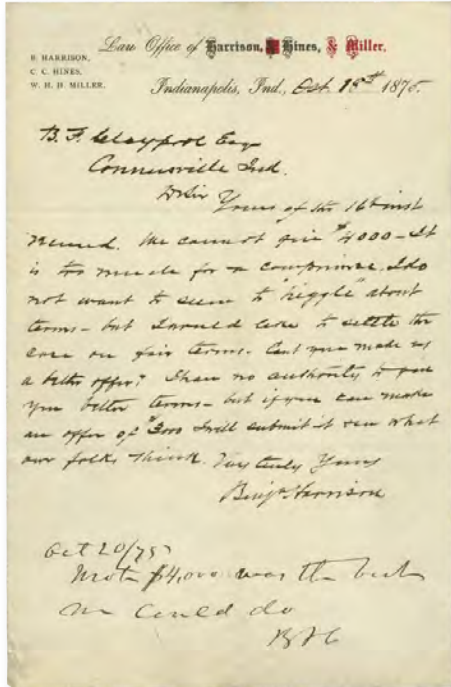 Law Office of Harrison, Hines, & Miller.
B. HARRISON,
C. C. HINES,
W. H. H. MILLER.
Indianapolis, Ind., Oct. 18th 1875.
B. F. Claypool Esq
Connersville Ind.
D Sir
Yours of the 16th inst
received. We cannot give $4000 - It
is too much for a compromise. I do
not want to seem to "higgle" about
terms - but I would like to settle the
case on fair terms. Cant you made us
a better offer? I have no authority to
you better terms - but if you can make
an offer of $3000 I will submit it & see what
our folks think. Very truly Yours
Benj Harrison
Oct 20/75
Wrote $4,000 was the best
we could do
B F C